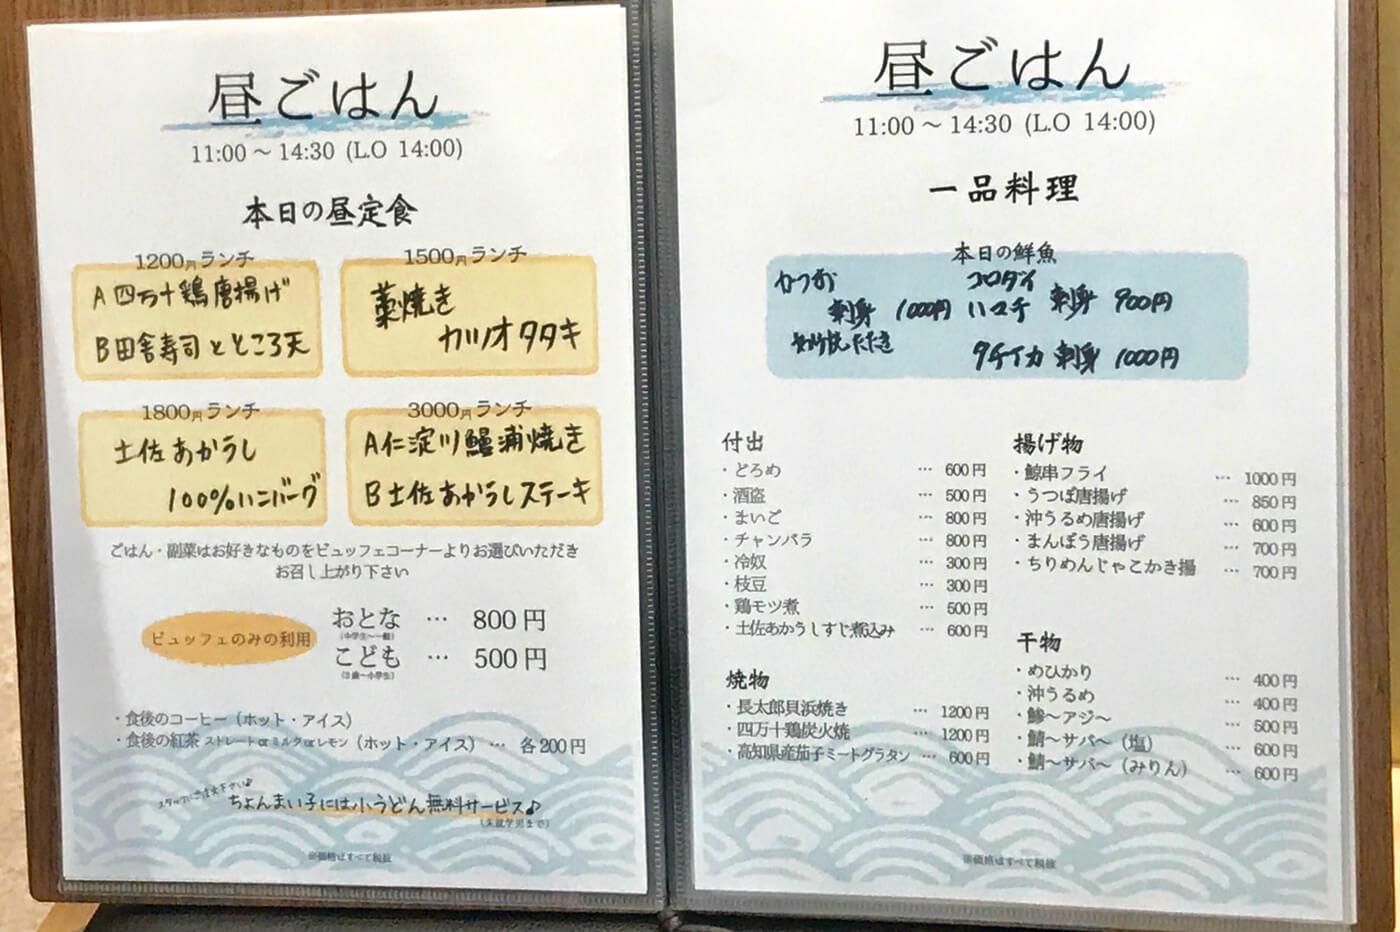 昼ごはん
11:00～14:30 (L.O 14:00)
本日の昼定食
1200円ランチ
A 四万十鶏唐揚げ
B 田舎寿司ところ天
1500円ランチ
藁焼き
カツオタタキ
1800円ランチ
土佐あかうし
100%ハンバーグ
3000円ランチ
A 仁淀川鰻蒲焼き
B 土佐あかうしステーキ
ごはん・副菜はお好きなものをビュッフェコーナーよりお選びいただき
お召し上がり下さい
ビュッフェのみの利用
おとな … 800円
(中学生〜一般)
こども … 500円
(3歳〜小学生)
・食後のコーヒー（ホット・アイス）
・食後の紅茶 ストレートorミルクorレモン（ホット・アイス） … 各200円
スタッフにご注文下さい♪
ちょんまい子には小うどん無料サービス♪
(未就学児まで)
※価格はすべて税抜
昼ごはん
11:00～14:30 (L.O 14:00)
一品料理
本日の鮮魚
かつお
刺身 1000円
たたき
コロダイ
ハマチ 刺身 900円
タチイカ 刺身 1000円
付出
・どろめ … 600円
・酒盗 … 500円
・まいご … 800円
・チャンバラ … 800円
・冷奴 … 300円
・枝豆 … 300円
・鶏モツ煮 … 500円
・土佐あかうしすじ煮込み … 600円
焼物
・長太郎貝浜焼き … 1200円
・四万十鶏炭火焼 … 1200円
・高知県産茄子ミートグラタン … 600円
揚げ物
・鯨串フライ … 1000円
・うつぼ唐揚げ … 850円
・沖うるめ唐揚げ … 600円
・まんぼう唐揚げ … 700円
・ちりめんじゃこかき揚 … 700円
干物
・めひかり … 400円
・沖うるめ … 400円
・鯵〜アジ〜 … 500円
・鯖〜サバ〜（塩） … 600円
・鯖〜サバ〜（みりん） … 600円
※価格はすべて税抜